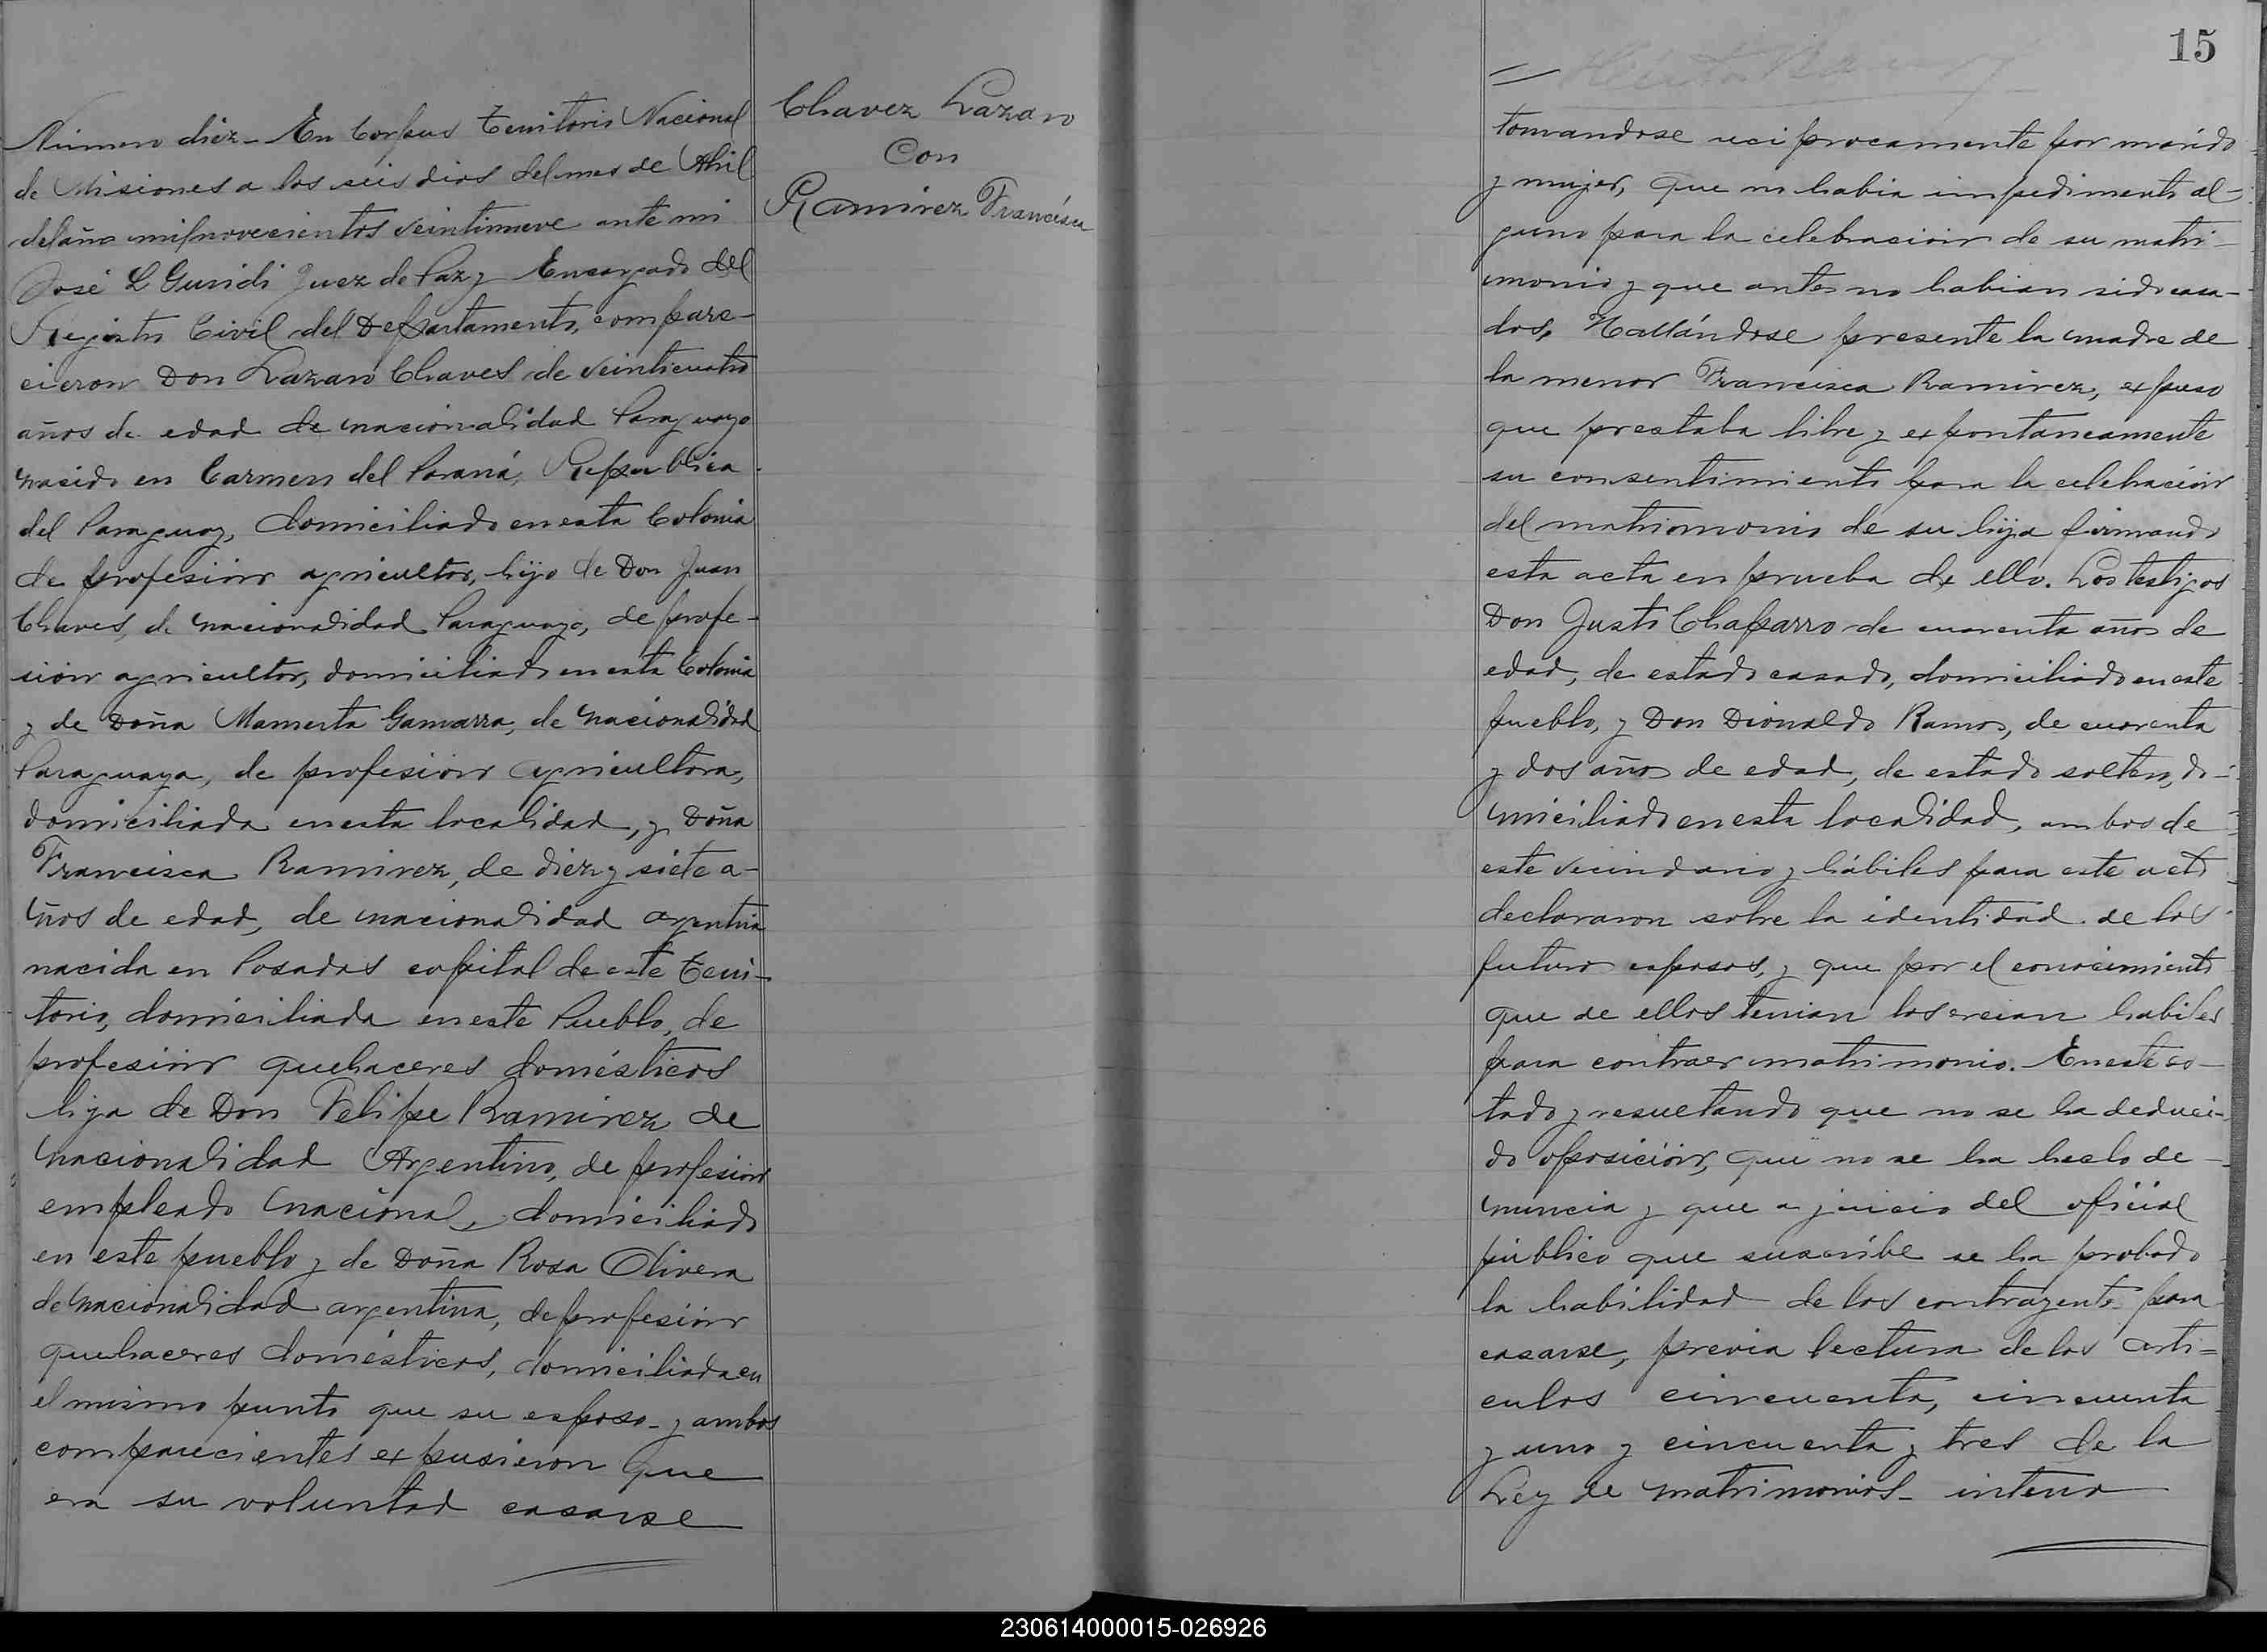 Número diez - En Corpus Territorio Nacional
de Misiones a los seis dias del mes de Abril
del año mil novecientos veintinueve ante mi
José L Guridi Juez de Paz y Encargado del
Registro Civil del Departamento, compare-
cieron Don Lazaro Chaves de veinticuatro
años de edad de nacionalidad Paraguayo
nacido en Carmen del Paraná, Republica
del Paraguay, domiciliado en esta Colonia
de profesión agricultor, hijo de Don Juan
Chaves, de nacionalidad Paraguayo, de profe-
sión agricultor, domiciliado en esta Colonia
y de Doña Mamerta Gamarra, de nacionalidad
Paraguaya, de profesión agricultora,
domiciliada en esta localidad, y Doña
Francisca Ramirez, de diez y siete a-
ños de edad, de nacionalidad argentina
nacida en Posadas capital de este Terri-
torio, domiciliada en este Pueblo, de
profesión quehaceres domésticos
hija de Don Felipe Ramirez de
nacionalidad Argentino, de profesión
empleado nacional, domiciliado
en este pueblo y de Doña Rosa Olivera
de nacionalidad argentina, de profesión
quehaceres domésticos, domiciliada en
el mismo punto que su esposo - y ambos
comparecientes expusieron que
era su voluntad casarse
Chavez Lazaro
Con
Ramirez Francisca
15
tomandose reciprocamente por marido
y mujer, que no habia impedimento al-
guno para la celebración de su matri-
monio y que antes no habian sido casa-
dos, Hallándose presente la madre de
la menor Francisca Ramirez, expuso
que prestaba libre y expontaneamente
su consentimiento para la celebración
del matrimonio de su hija firmando
esta acta en prueba de ello. Los testigos
Don Justo Chaparro de cuarenta años de
edad, de estado casado, domiciliado en este
pueblo, y Don Dionaldo Ramos, de cuarenta
y dos años de edad, de estado soltero, do-
miciliado en esta localidad, ambos de
este vecindario y hábiles para este acto
declararon sobre la identidad de los
futuros esposos, y que por el conocimiento
que de ellos tenian los creian habiles
para contraer matrimonio. En este es-
tado y resultando que no se ha deduci-
do oposición, que no se ha hecho de-
nuncia y que a juicio del oficial
público que suscribe se ha probado
la habilidad de los contrayentes para
casarse, previa lectura de los arti-
culos cincuenta, cincuenta
y uno y cincuenta y tres de la
Ley de matrimonios - interro
230614000015-026926